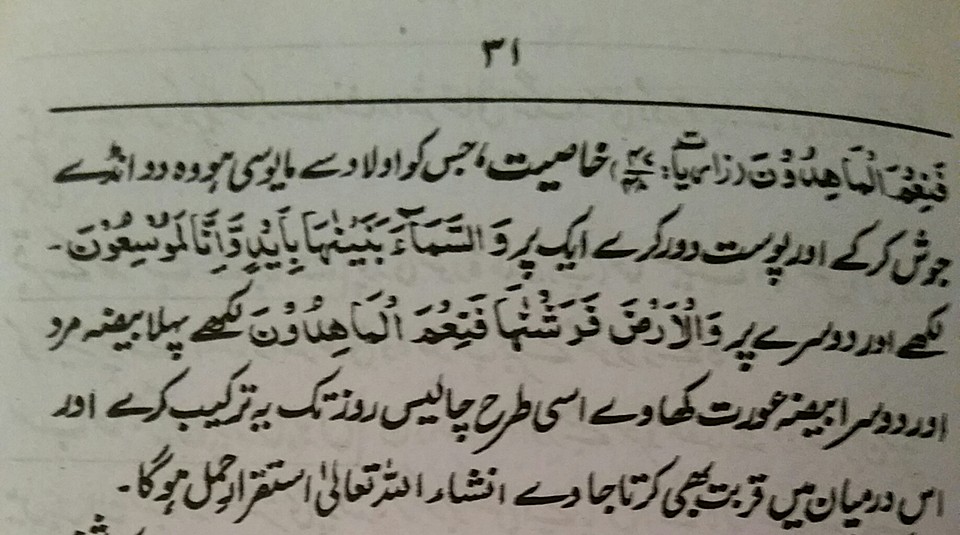 ۳۱
فَنِعْمَ الْمَاهِدُوْنَ (ذاریات: ۴۷ ۴۸) خاصیت، جس کو اولاد سے مایوسی ہو وہ دو انڈے
جوش کرکے اور پوست دور کرے ایک پر وَ السَّمَآءَ بَنَيْنٰهَا بِاَيْدٍ وَّاِنَّا لَمُوْسِعُوْنَ۔
لکھے اور دوسرے پر وَالْاَرْضَ فَرَشْنٰهَا فَنِعْمَ الْمَاهِدُوْنَ لکھے پہلا بیضہ مرد
اور دوسرا بیضہ عورت کھاوے اسی طرح چالیس روز تک یہ ترکیب کرے اور
اس درمیان میں قربت بھی کرتا جاوے انشاء اللہ تعالیٰ استقرارِ حمل ہوگا۔